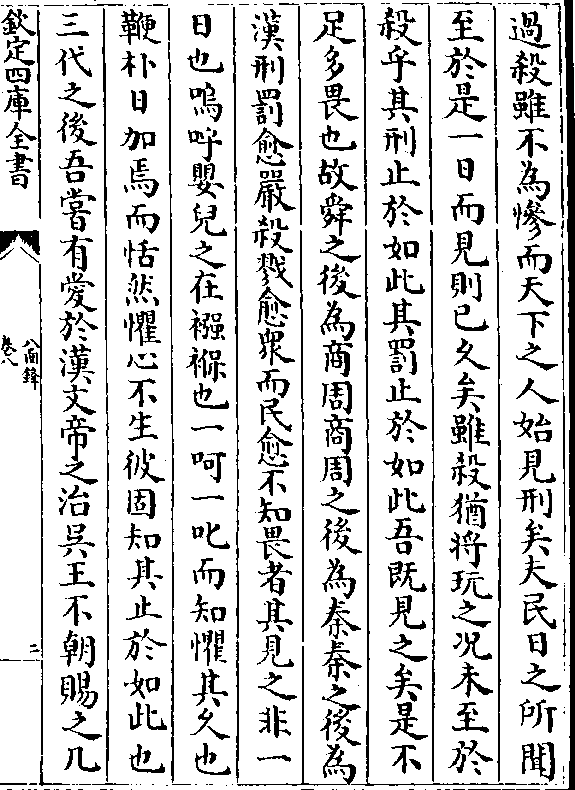 過殺雖不為慘而天下之人始見刑矣夫民日之所聞
至於是一日而見則已久矣雖殺猶將玩之况未至於
殺乎其刑止於如此其罰止於如此吾既見之矣是不
足多畏也故舜之後為商周商周之後為秦秦之後為
漢刑罰愈嚴殺戮愈眾而民愈不知畏者其見之非一
日也嗚呼嬰兒之在襁褓也一呵一叱而知懼其久也
鞭朴日加焉而恬然懼心不生彼固知其止於如此也
三代之後吾嘗有愛於漢文帝之治吳王不朝賜之几
欽定四庫全書
八面鋒
卷八
三